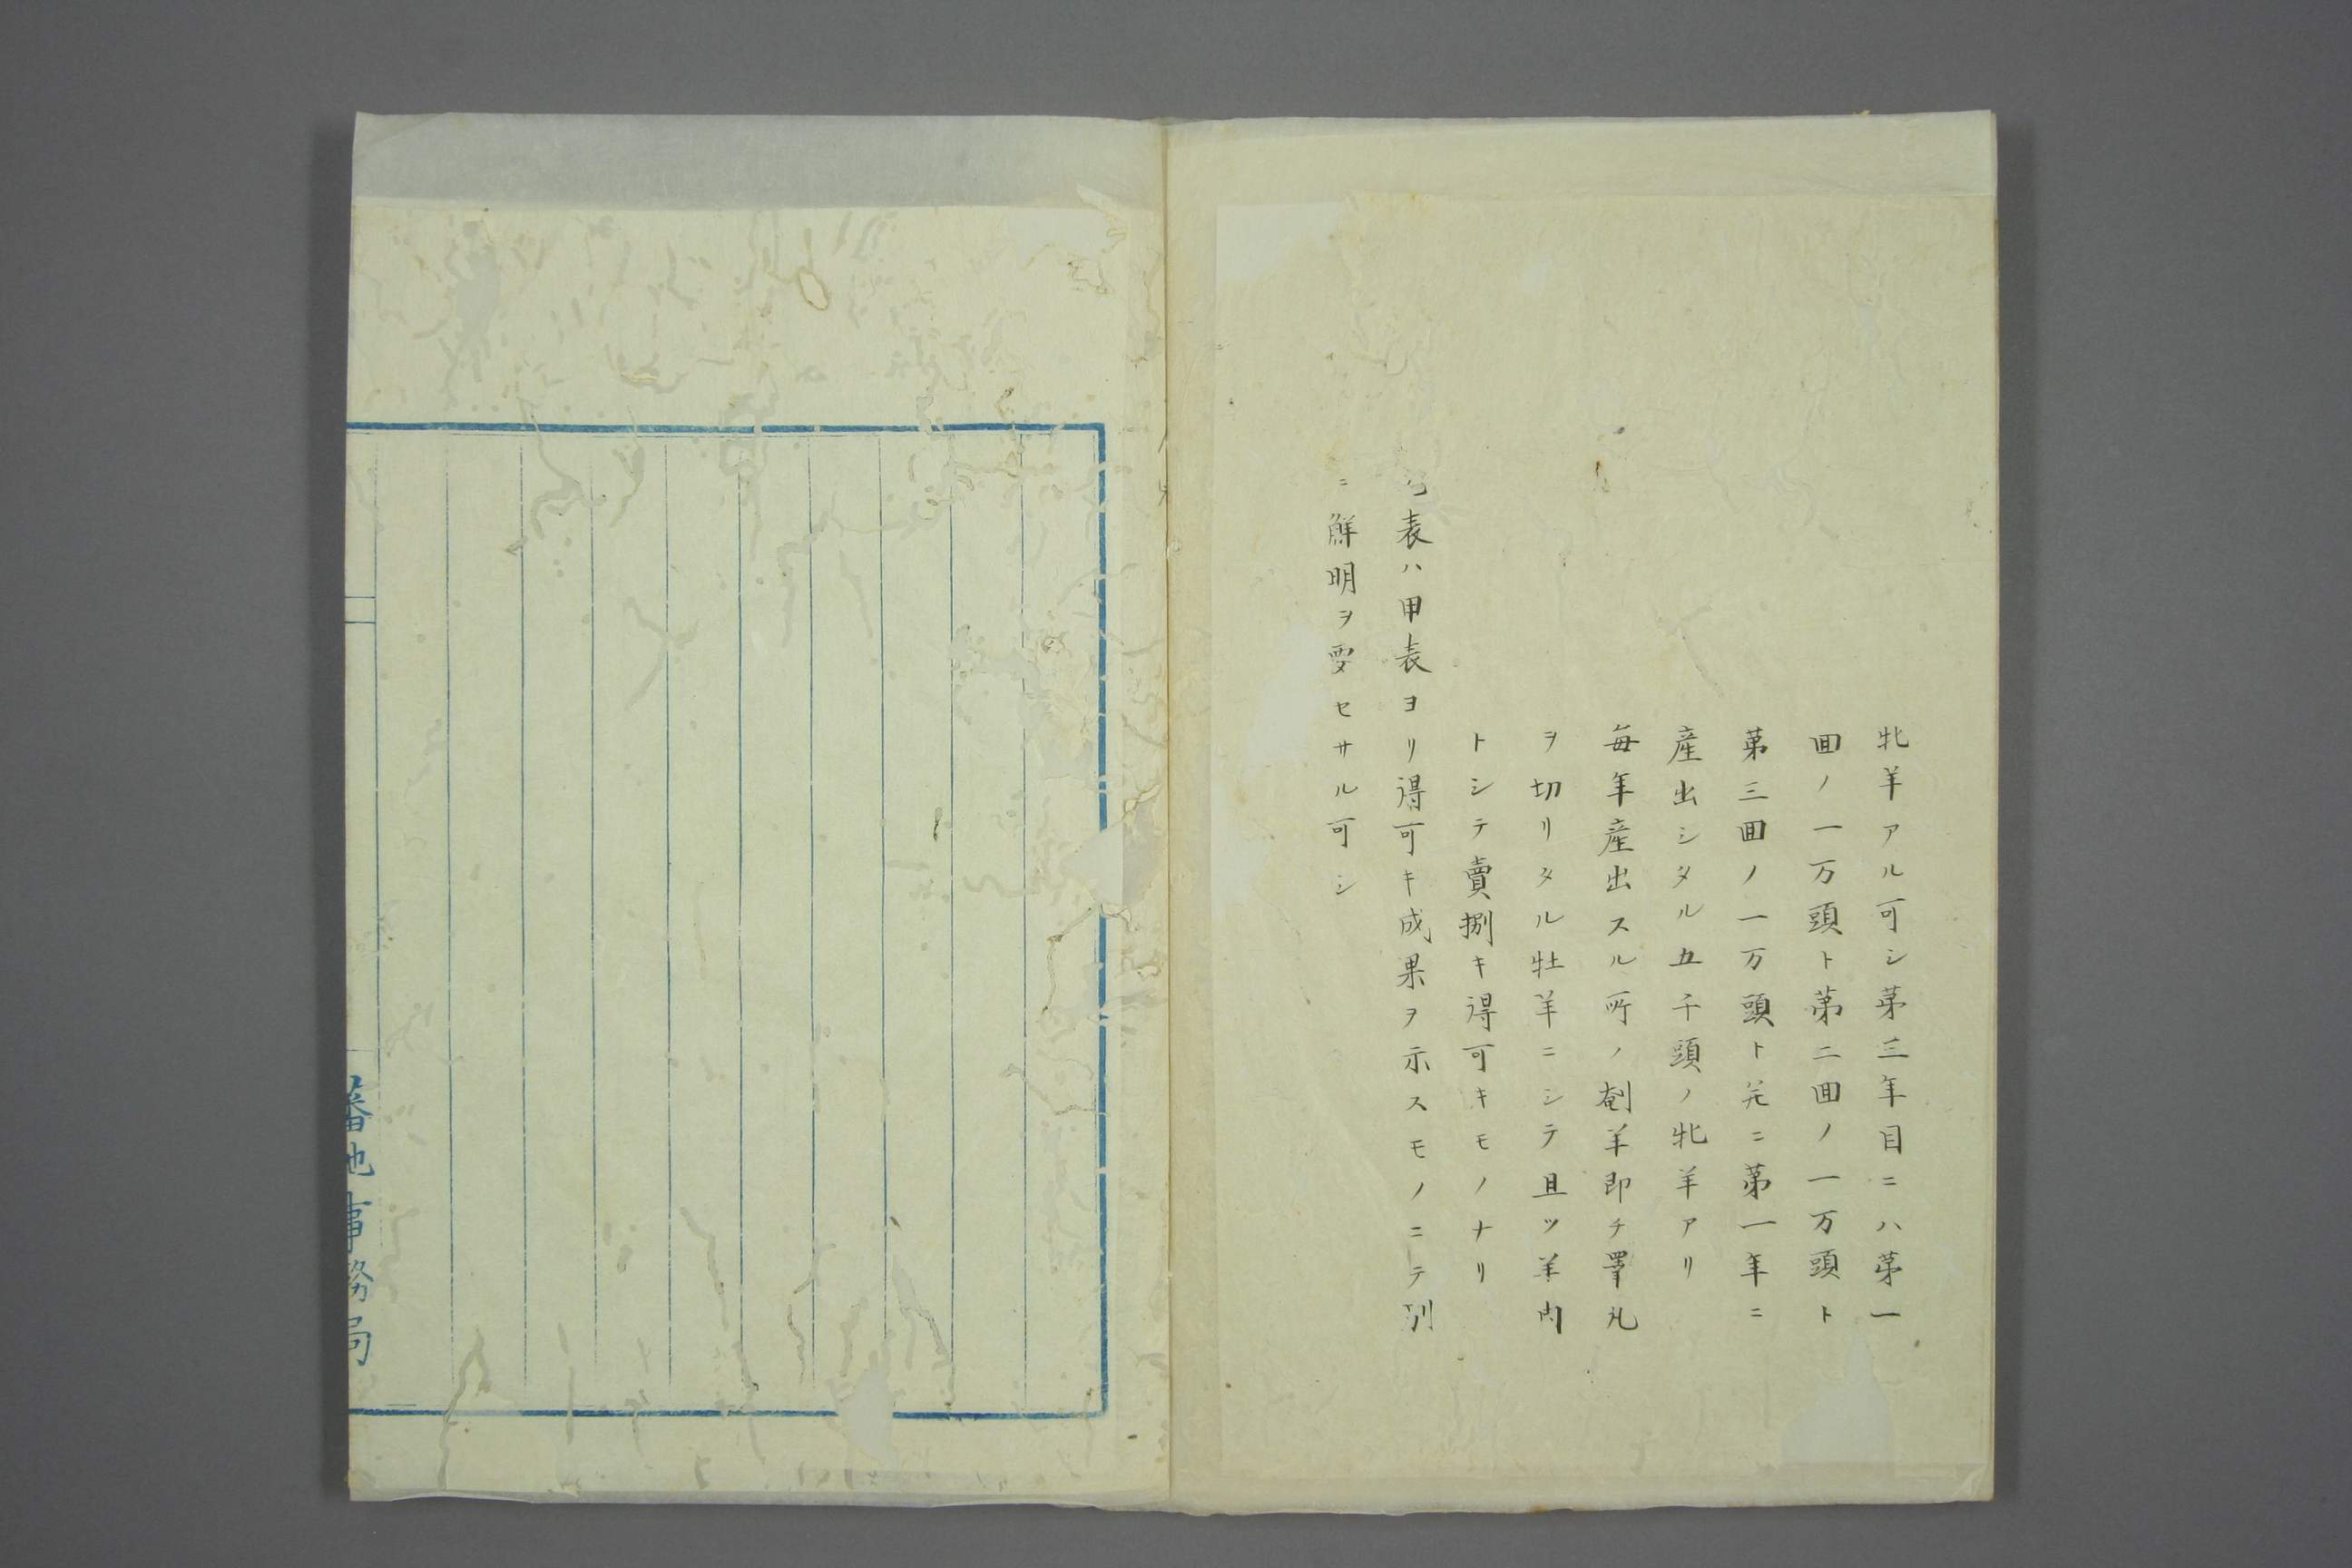 牝羊アル可シ第三年目ニハ第一
囬ノ一万頭ト第二囬ノ一万頭ト
第三囬ノ一万頭ト并ニ第一年ニ
産出シタル五千頭ノ牝羊アリ
毎年産出スル所ノ剦羊即チ睪丸
ヲ切リタル牡羊ニシテ且ツ羊肉
トシテ賣捌キ得可キモノナリ
表ハ甲表ヨリ得可キ成果ヲ示スモノニテ別
ニ觧明ヲ要セサル可シ
蕃地事務局